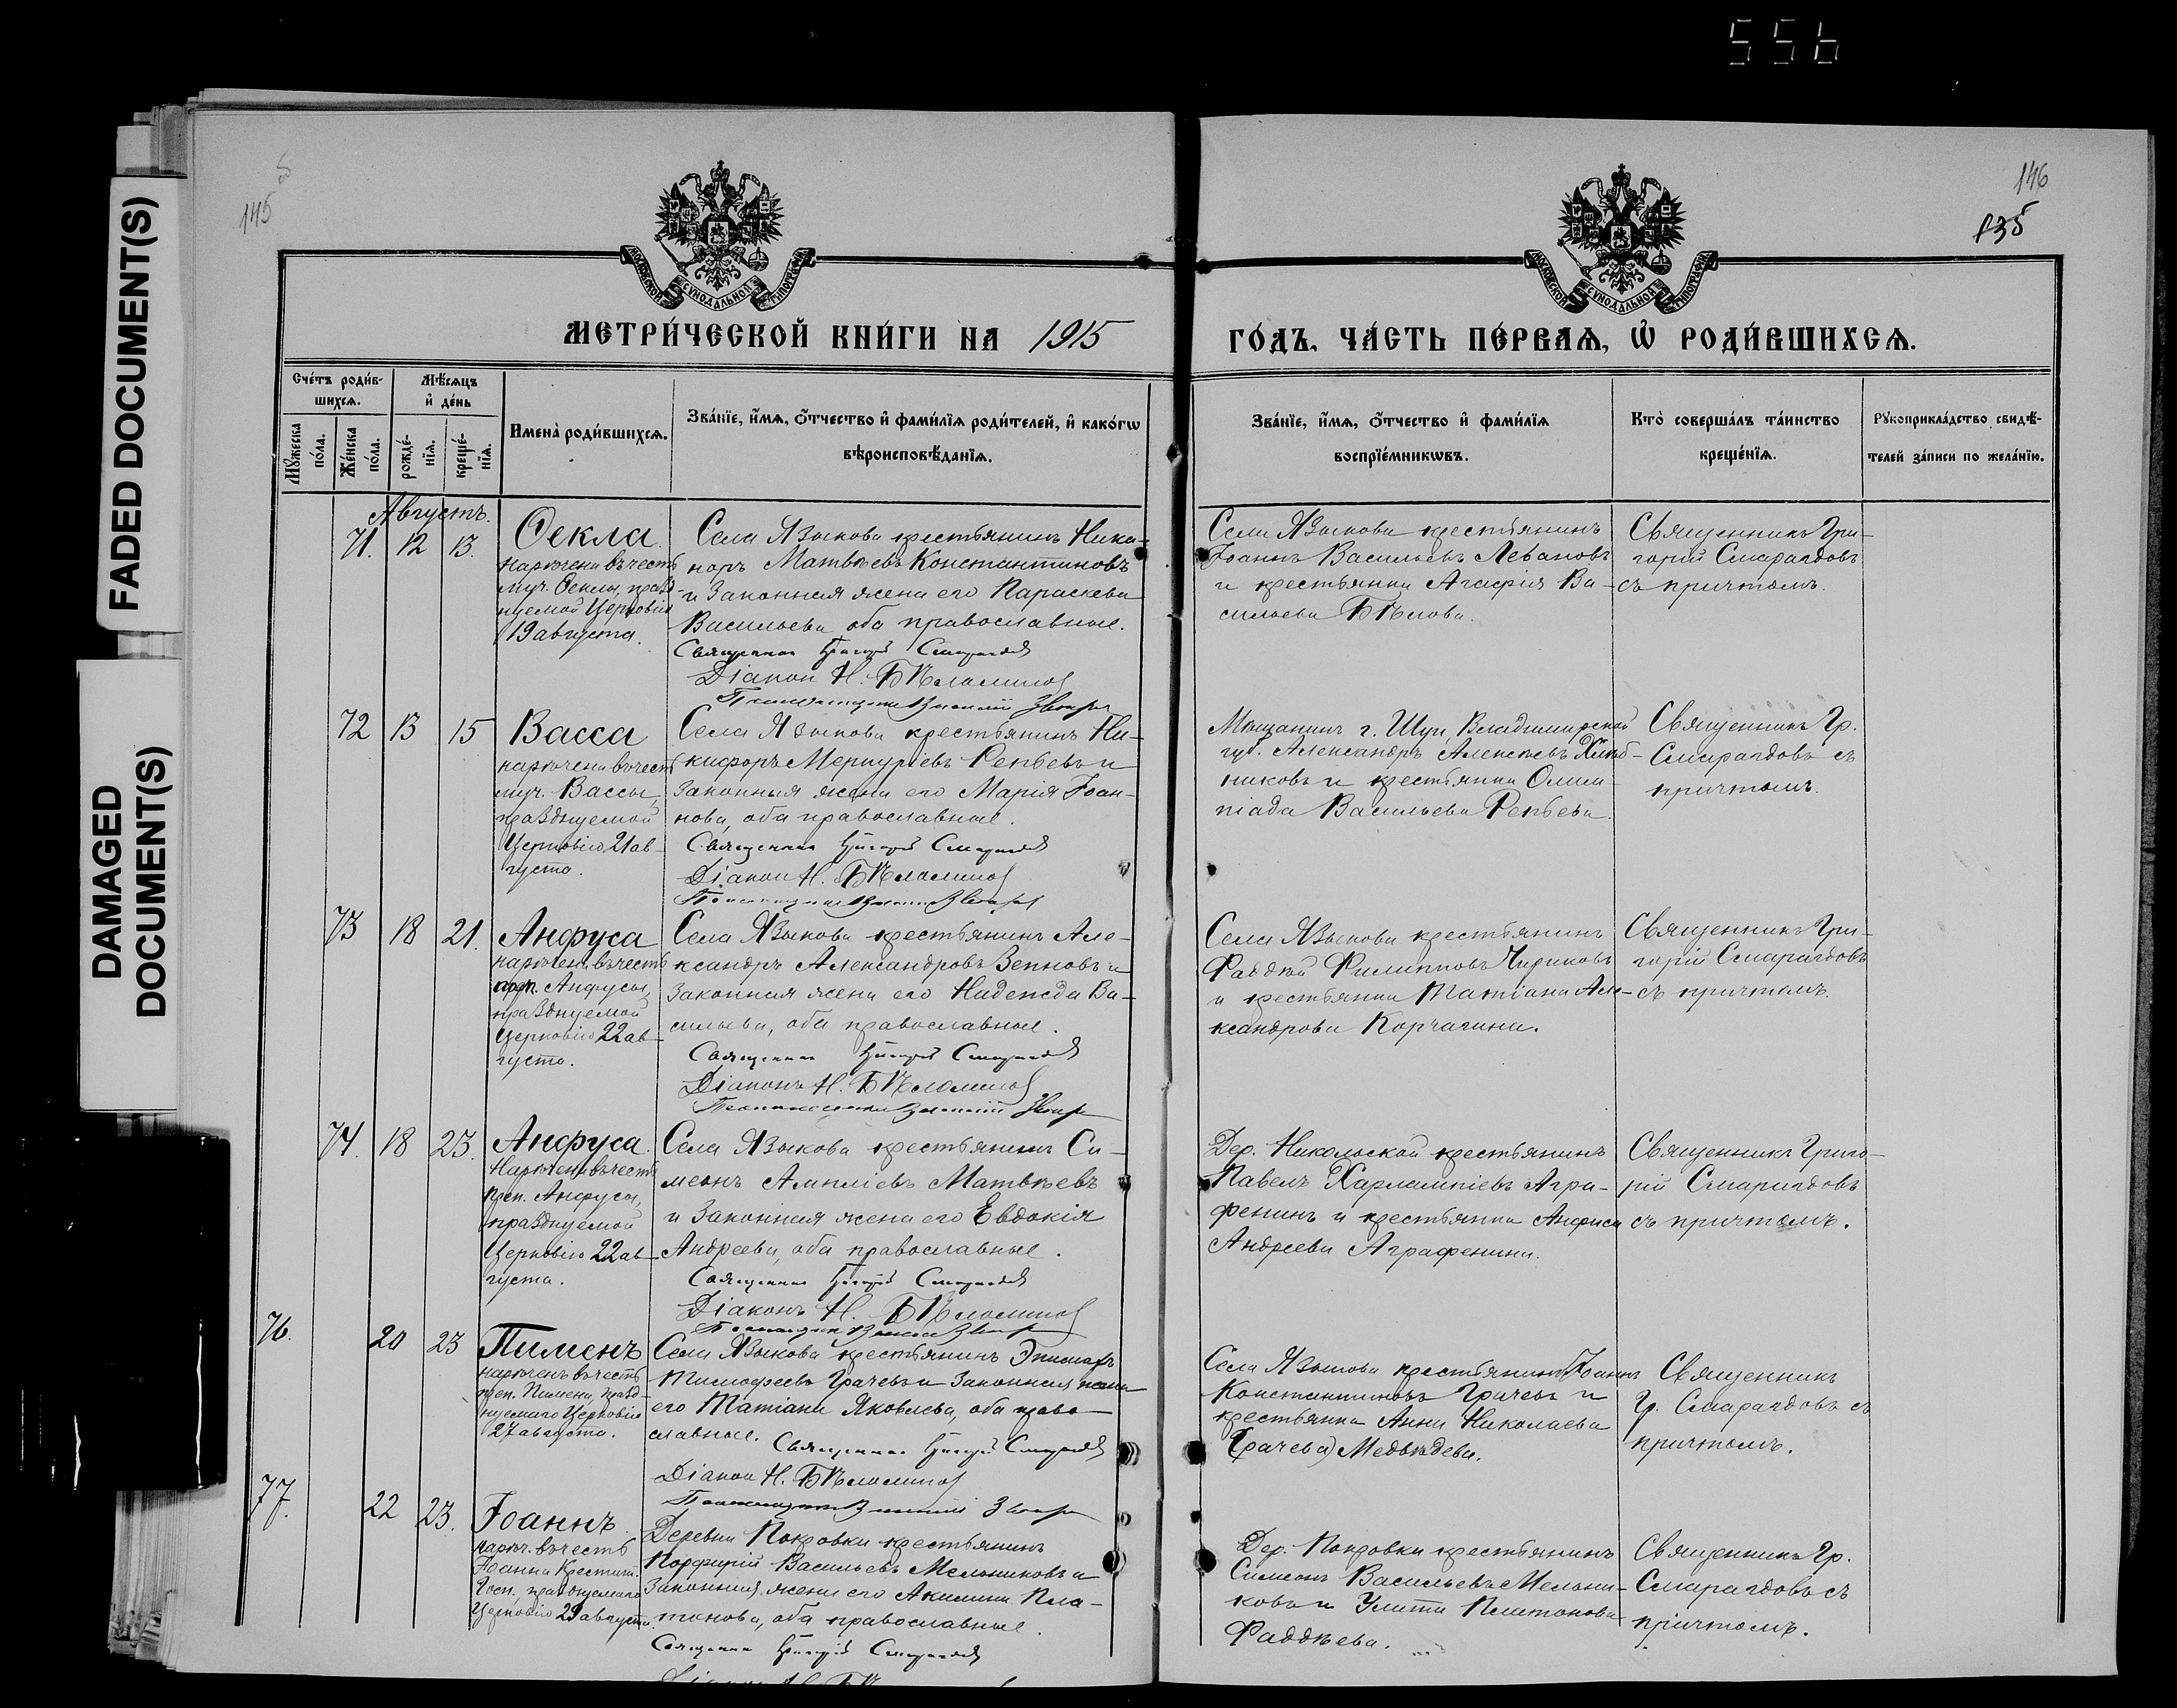 556
FADED DOCUMENT(S)
DAMAGED
DOCUMENT(S)
145
146
135
МОСКОВСКОЙ СѴНОДАЛЬНОЙ ТИПОГРАФІИ
МОСКОВСКОЙ СѴНОДАЛЬНОЙ ТИПОГРАФІИ
МЕТРИ́ЧЕСКОЙ КНИ́ГИ НА 1915
ГО́ДЪ, ЧА́СТЬ ПЕ́РВАѦ, Ѡ҆ РОДИ́ВШИХСѦ.
Сче́тъ роди́в-
шихсѧ.
Мꙋ́жеска
по́ла.
Же́нска
по́ла.
Мѣ́сѧцъ
и҆ де́нь
рожде́-
нїѧ.
креще́-
нїѧ.
Имена̀ роди́вшихсѧ.
Зва́нїе, и҆́мѧ, ѻ҆́тчество и҆ фами́лїѧ роди́телей, и҆ како́гѡ
вѣроисповѣ́данїѧ.
Зва́нїе, и҆́мѧ, ѻ҆́тчество и҆ фами́лїѧ
воспрїе́мникѡвъ.
Кто̀ соверша́лъ та́инство
креще́нїѧ.
Рꙋкоприкла́дство свидѣ́-
телей за́писи по жела́нїю.
Августъ.
71. 12 13.
Ѳекла
наречена въ честь
муч. Ѳеклы, празд-
нуемой Церковію
19 августа.
Села Языкова крестьянинъ Ника-
норъ Матвѣевъ Константиновъ
и законная жена его Параскева
Васильева, оба православные.
Священникъ Григорій Смарагдовъ
Діаконъ Н. Бѣломиловъ
Села Языкова крестьянинъ
Іоаннъ Васильевъ Левановъ
и крестьянка Агафія Ва-
сильева Бѣлова.
Священникъ Гри-
горій Смарагдовъ
съ причтомъ.
72 13 15
Васса
наречена въ честь
муч. Вассы,
празднуемой
Церковію 21 ав-
густа.
Села Языкова крестьянинъ Ни-
кифоръ Меркуріевъ Репьевъ и
законная жена его Марія Іоан-
нова, оба православные.
Священникъ Григорій Смарагдовъ
Діаконъ Н. Бѣломиловъ
Мѣщанинъ г. Шуи, Владимирской
губ. Александръ Алексѣевъ Хлѣб-
никовъ и крестьянка Олим-
піада Васильева Репьева.
Священникъ Гр.
Смарагдовъ съ
причтомъ.
73 18 21.
Анфуса
наречена въ честь
преп. Анфусы,
празднуемой
Церковію 22 ав-
густа.
Села Языкова крестьянинъ Але-
ксандръ Александровъ Зенновъ и
законная жена его Надежда Ва-
сильева, оба православные.
Священникъ Григорій Смарагдовъ
Діаконъ Н. Бѣломиловъ
Села Языкова крестьянинъ
Фаддѣй Филипповъ Чириковъ
и крестьянка Татіана Але-
ксандрова Корчагина.
Священникъ Гри-
горій Смарагдовъ
съ причтомъ.
74. 18 23.
Анфуса.
Наречена въ честь
преп. Анфусы,
празднуемой
Церковію 22 ав-
густа.
Села Языкова крестьянинъ Си-
меонъ Ампліевъ Матвѣевъ
и законная жена его Евдокія
Андреева, оба православные.
Священникъ Григорій Смарагдовъ
Діаконъ Н. Бѣломиловъ
Дер. Никольской крестьянинъ
Павелъ Харлампіевъ Агра-
фенинъ и крестьянка Анфиса
Андреева Аграфенина.
Священникъ Григо-
рій Смарагдовъ
съ причтомъ.
76. 20 23
Пименъ
нареченъ въ честь
преп. Пимена, празд-
нуемаго Церковію
27 августа.
Села Языкова крестьянинъ Эпимахъ
Тимофеевъ Грачевъ и законная жена
его Татіана Яковлева, оба право-
славные. Священникъ Григорій Смарагдовъ
Діаконъ Н. Бѣломиловъ
Села Языкова крестьянинъ Іоаннъ
Константиновъ Грачевъ и
крестьянка Анна Николаева
(Грачева) Медвѣдева.
Священникъ
Гр. Смарагдовъ съ
причтомъ.
77. 22 23.
Іоаннъ
нареч. въ честь
Іоанна Крестит.
Госп., празднуемаго
Церковію 29 августа.
Деревни Покровки крестьянинъ
Порфирій Васильевъ Мельниковъ и
законная жена его Акилина Пла-
тонова, оба православные.
Священникъ Григорій Смарагдовъ
Дер. Покровки крестьянинъ
Симеонъ Васильевъ Мельни-
ковъ и Улита Платонова
Фаддѣева.
Священникъ Гр.
Смарагдовъ съ
причтомъ.